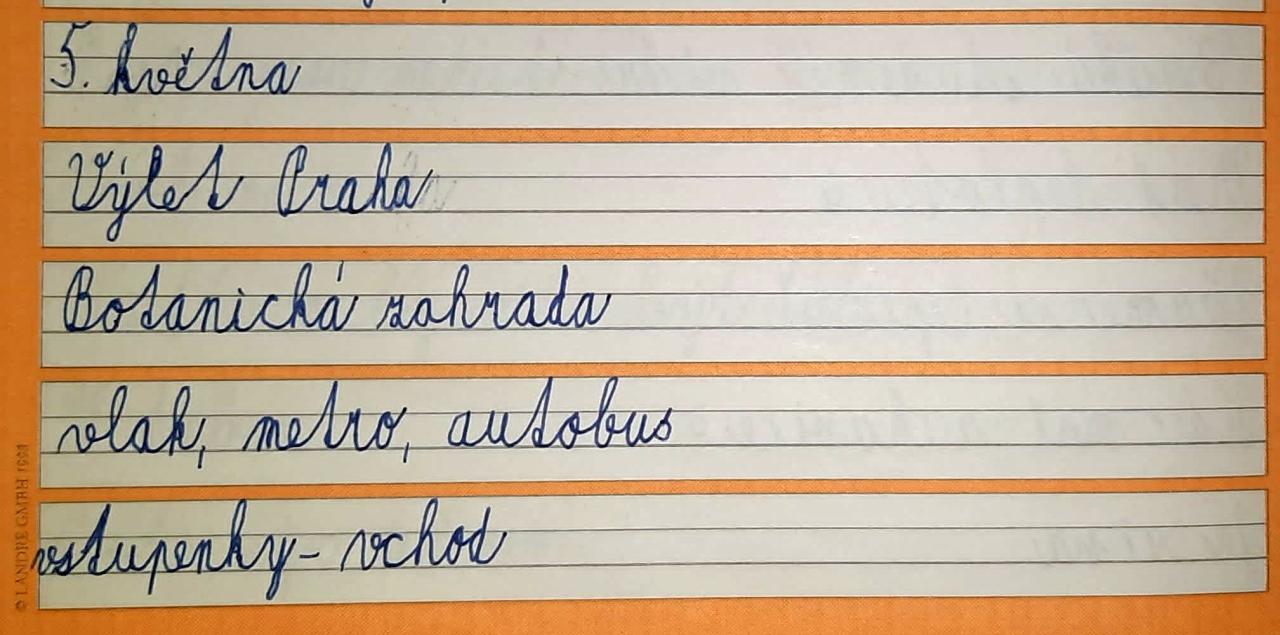 5. května
Výlet Praha
Botanická zahrada
vlak, metro, autobus
vstupenky – vchod
© LANDRE GMBH 1991